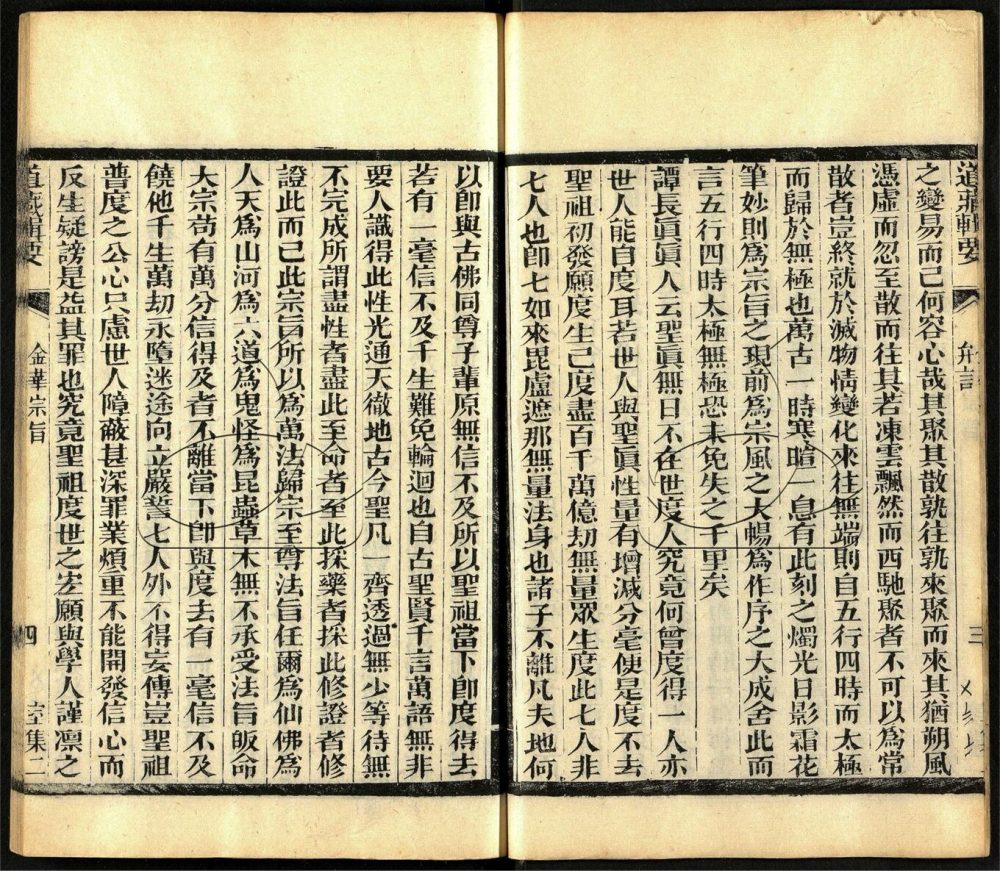 道藏輯要 弁言 三
之變易而已何容心哉其聚其散孰往孰來聚而來其猶朔風
憑虛而忽至散而往其若凍雲飄然而西馳聚者不可以為常
散者豈終就於滅物情變化來往無端則自五行四時而太極
而歸於無極也萬古一時寒暄一息有此刻之燭光日影霜花
筆妙則為宗旨之現前為宗風之大暢為作序之大成舍此而
言五行四時太極無極恐未免失之千里矣
譚長眞眞人云聖眞無日不在世度人究竟何曾度得一人亦
世人能自度耳若世人與聖眞性量有增減分毫便是度不去
聖祖初發願度生已度盡百千萬億劫無量眾生度此七人非
七人也卽七如來毘盧遮那無量法身也諸子不離凡夫地何
以卽與古佛同尊子輩原無信不及所以聖祖當下卽度得去
若有一毫信不及千生難免輪迴也自古聖賢千言萬語無非
要人識得此性光通天徹地古今聖凡一齊透過無少等待無
不完成所謂盡性者盡此至命者至此採藥者採此修證者修
證此而已此宗旨所以為萬法歸宗至尊法旨任爾為仙佛為
人天為山河為六道為鬼怪為昆蟲草木無不承受法旨皈命
大宗苟有萬分信得及者不離當下卽與度去有一毫信不及
饒他千生萬劫永障迷途向立嚴誓七人外不得妄傳豈聖祖
普度之公心只慮世人障蔽甚深罪業煩重不能開發信心而
反生疑謗是益其罪也究竟聖祖度世之宏願與學人謹凜之
道藏輯要 金華宗旨 四 集二